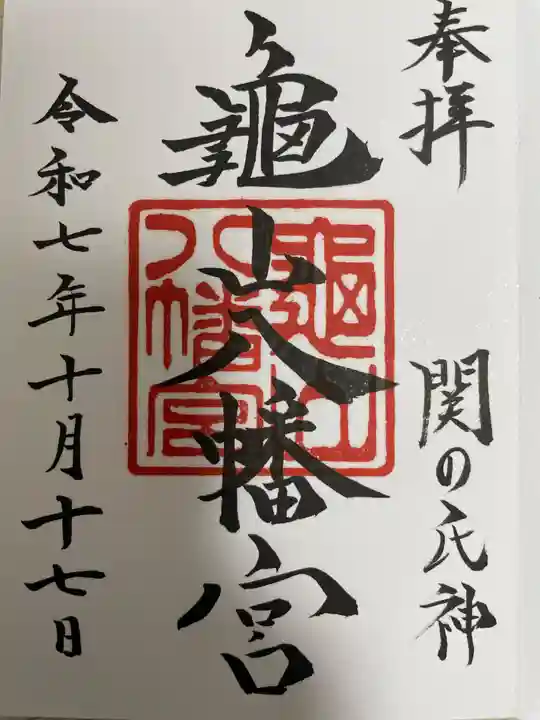 奉拝
関の氏神
龜山八幡宮
龜山
八幡宮
令和七年十月十七日